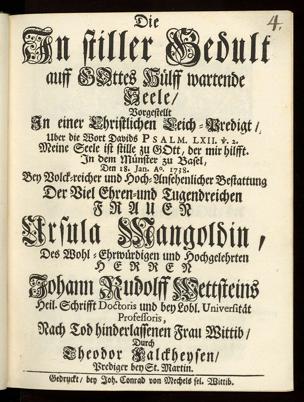 4.
Die
In stiller Gedult
auff GOttes Hülff wartende
Seele/
Vorgestellt
In einer Christlichen Leich-Predigt/
Uber die Wort Davids PSALM. LXII. v. 2.
Meine Seele ist stille zu GOtt, der mir hilfft.
In dem Münster zu Basel,
Den 18. Jan. Aº. 1738.
Bey Volck-reicher und Hoch-Ansehenlicher Bestattung
Der Viel Ehren-und Tugendreichen
FRAUEN
Ursula Mangoldin,
Des Wohl-Ehrwürdigen und Hochgelehrten
HERREN
Johann Rudolff Wettsteins
Heil. Schrifft Doctoris und bey Lobl. Universität
Professoris,
Nach Tod hinderlassenen Frau Wittib/
Durch
Theodor Falckheysen/
Prediger bey St. Martin.
Gedruckt/ bey Joh. Conrad von Mechels sel. Wittib.